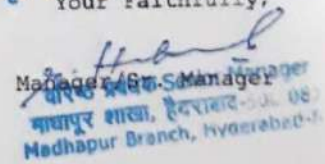 Your Faithfully,
Manager/Sr. Manager
वरिष्ठ प्रबंधक Senior Manager
माधापुर शाखा, हैदराबाद
Madhapur Branch, Hyderabad